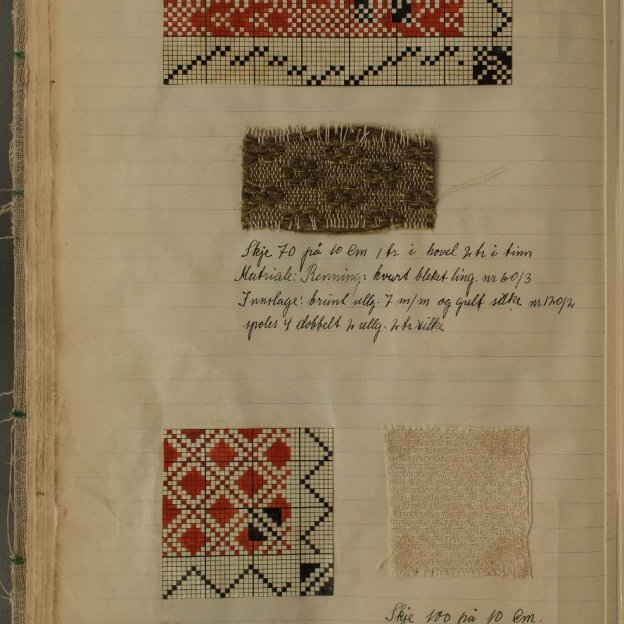 Skje 70 på 10 Cm 1 tr i hovel 2 tr i tinn
Matriale: Renning: kvart bleket ling. nr 60/3
Innslage: brunt ullg. 7 m/m og gult silke nr 120/2
spoles 4 dobbelt 2 ullg. 2 tr silke
Skje 100 på 10 Cm.